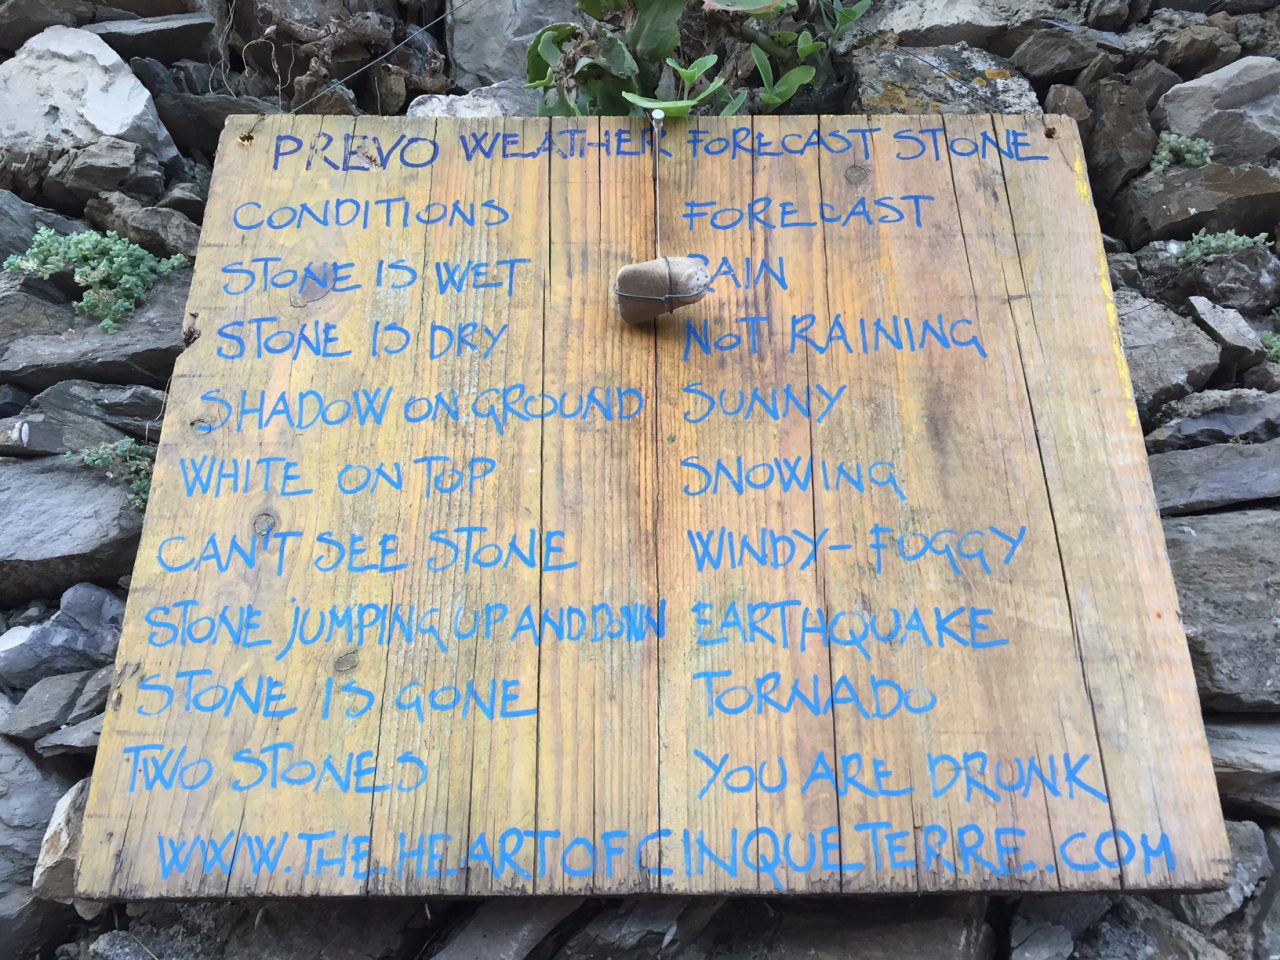 PREVO WEATHER FORECAST STONE
CONDITIONS FORECAST
STONE IS WET RAIN
STONE IS DRY NOT RAINING
SHADOW ON GROUND SUNNY
WHITE ON TOP SNOWING
CAN'T SEE STONE WINDY-FOGGY
STONE JUMPING UP AND DOWN EARTHQUAKE
STONE IS GONE TORNADO
TWO STONES YOU ARE DRUNK
WWW.THE.HEARTOFCINQUETERRE.COM